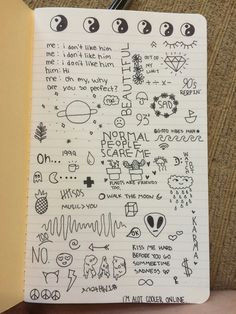 me: i don't like him
me: i don't like him
me: i don't like him
him: Hi
me: oh my, why
are you so perfect?
BEAUTIFUL
OUT OF
MY
LIMIT
90's
SAD
93
GOOD VIBES MAN
NORMAL
PEOPLE
SCARE ME
Oh...
1994
PLANTS ARE FRIENDS
TOO.
SOS
WALK THE MOON
MUSIC > YOU
TOO
OK
NO.
KISS ME HARD
BEFORE YOU GO
SUMMERTIME
SADNESS
KARMA
I'M ALOT COOLER ONLINE.